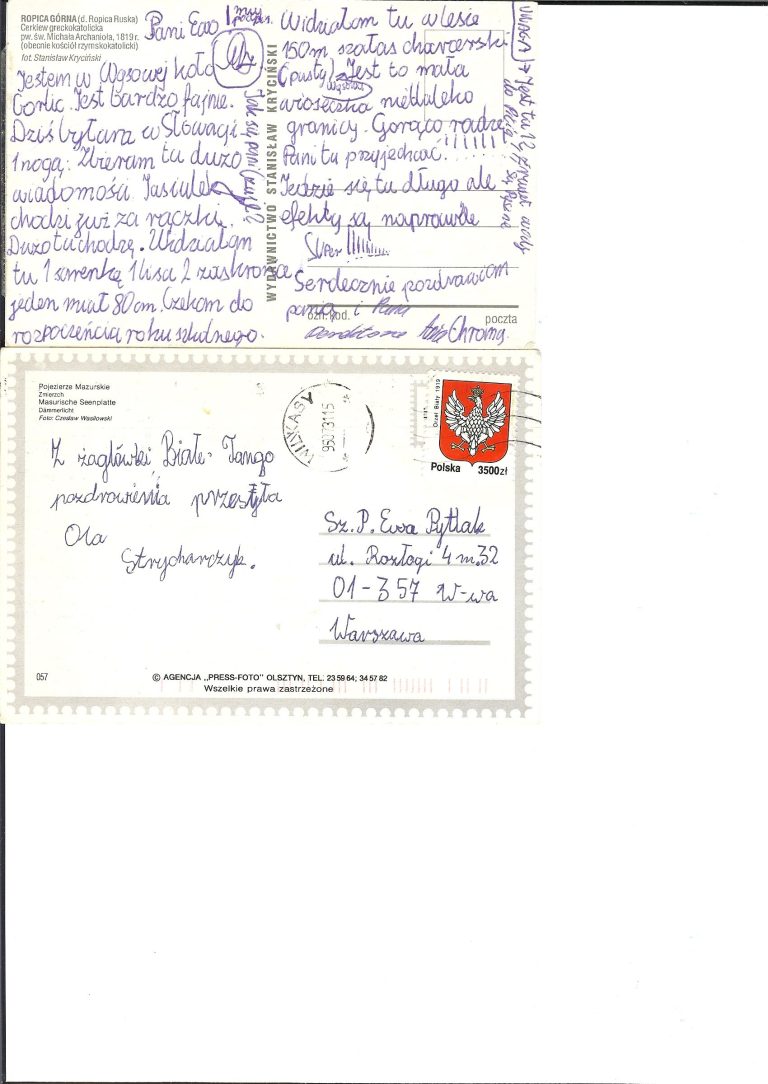 ROPICA GÓRNA (d. Ropica Ruska)
Cerkiew greckokatolicka
pw. św. Michała Archanioła, 1819 r.
(obecnie kościół rzymskokatolicki)
fot. Stanisław Kryciński
Pani Ewo!
mój
podpis.
Jestem w Wysowej koło
Gorlic. Jest bardzo fajnie.
Dziś byłam w Słowacji
1 nogą. Zbieram tu dużo
wiadomości. Jasiulek
chodzi już za rączki.
Dużo tu chodzę. Widziałam
tu 1 sarenkę 1 lisa 2 zaskrońce
jeden miał 80 cm. Czekam do
rozpoczęcia roku szkolnego.
Jak się pani czuje?
WYDAWNICTWO STANISŁAW KRYCIŃSKI
Widziałam tu w lesie
150 m szałas
(pusty). Jest to mała
Wysowa
wioseczka niedaleko
granicy. Gorąco radzę
Pani tu przyjechać!!!!!!
Jedzie się tu długo ale
efekty są naprawdę
super!!!!!!
Serdecznie pozdrawiam
panią i Pana
ozn. kod.
poczta
Chroma.
UWAGA!
Jest tu 12 źródeł wody
do picia
Pojezierze Mazurskie
Zmierzch
Masurische Seenplatte
Dämmerlicht
Foto: Czesław Wasilowski
MIKASY
960731 15
Orzeł Biały 1919
Polska 3500 zł
Z żaglówki Białe Tango
pozdrowienia przesyła
Ola
Strycharczyk.
Sz. P. Ewa Pytlak
ul. Rozłogi 4 m. 32
01-357 W-wa
Warszawa
057
© AGENCJA „PRESS-FOTO" OLSZTYN, TEL. 23 59 64; 34 57 82
Wszelkie prawa zastrzeżone